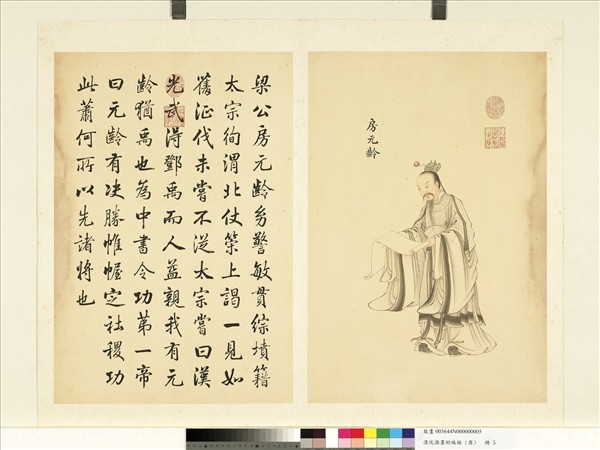 房元齡
梁公房元齡幼警敏貫綜墳籍
太宗徇渭北仗策上謁一見如
舊征伐未嘗不從太宗嘗曰漢
光武得鄧禹而人益親我有元
齡猶禹也為中書令功第一帝
曰元齡有决勝帷幄定社稷功
此蕭何所以先諸將也
故畫 003644N000000005
清沈源墨妙珠林（酉） 冊 5